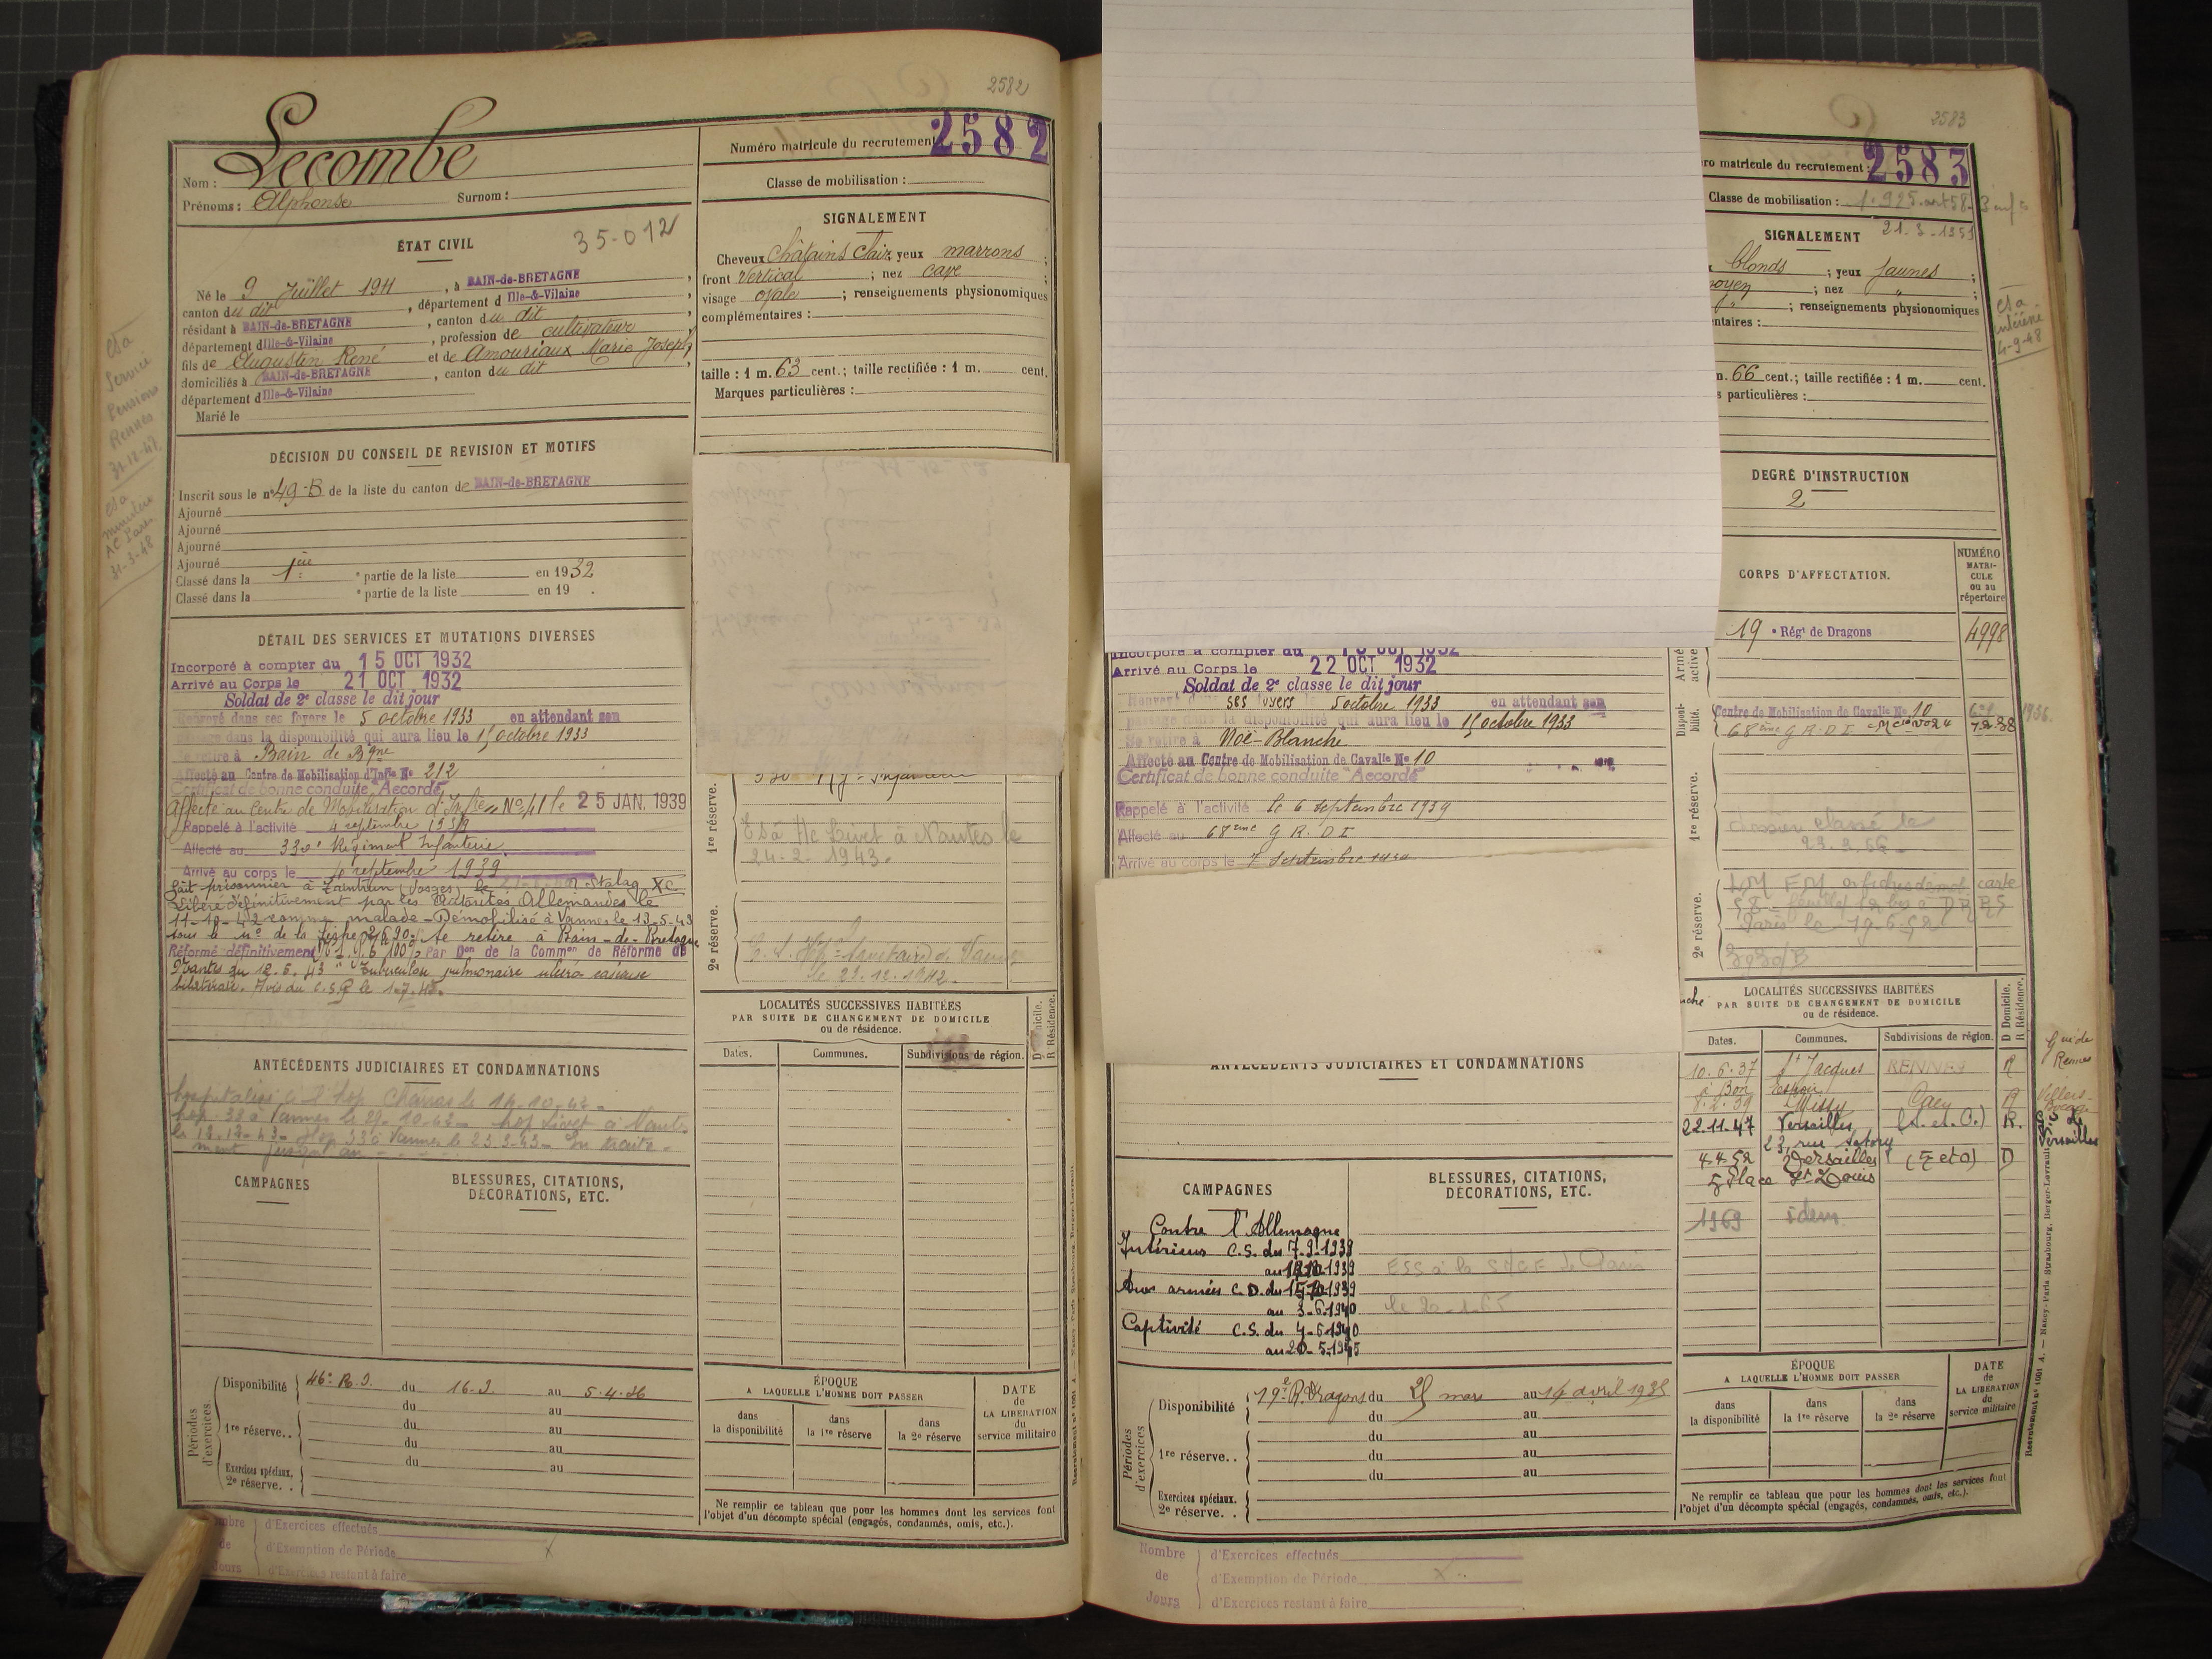 2582
Numéro matricule du recrutement 2582
Nom : Lecombe
Prénoms : Alphonse Surnom :
Classe de mobilisation :
35-012
ÉTAT CIVIL
Né le 9 Juillet 1911, à BAIN-de-BRETAGNE,
canton du dit, département d Ille-&-Vilaine,
résidant à BAIN-de-BRETAGNE, canton du dit,
département d Ille-&-Vilaine, profession de cultivateur
fils de Augustin René et de Amouriaux Marie Joseph,
domiciliés à BAIN-de-BRETAGNE, canton du dit,
département d Ille-&-Vilaine
Marié le
SIGNALEMENT
Cheveux châtains clair, yeux marrons ;
front vertical ; nez cave ;
visage ovale ; renseignements physionomiques
complémentaires :
taille : 1 m. 63 cent. ; taille rectifiée : 1 m. cent.
Marques particulières :
Service
Pensions
Rennes
31-12-47
AC Paris
31-3-48
DÉCISION DU CONSEIL DE REVISION ET MOTIFS
Inscrit sous le n° 49-B de la liste du canton de BAIN-de-BRETAGNE
Ajourné
Ajourné
Ajourné
Ajourné
Classé dans la 1ère partie de la liste en 1932
Classé dans la partie de la liste en 19 .
DÉTAIL DES SERVICES ET MUTATIONS DIVERSES
Incorporé à compter du 15 OCT 1932
Arrivé au Corps le 21 OCT 1932
Soldat de 2e classe le dit jour
Renvoyé dans ses foyers le 5 octobre 1933 en attendant son
passage dans la disponibilité qui aura lieu le 15 octobre 1933
Se retire à Bain de Bgne
Affecté au Centre de Mobilisation d'Infie No 212
Certificat de bonne conduite "Accordé"
Affecté au Centre de Mobilisation d'Infie No 41 le 25 JAN. 1939
Rappelé à l'activité 4 septembre 1939
Affecté au 330e Régiment Infanterie
Arrivé au corps le 4 septembre 1939
fait prisonnier à (Vosges) le Stalag XC
Libéré définitivement par les Autorités Allemandes le
11-10-42 comme malade - Démobilisé à Vannes le 13-5-43
sous le No de la se retire à Bain-de-Bretagne
Réformé définitivement 100% Par Don de la Common de Réforme de
Nantes du 12.5.43 pulmonaire
bilatérale. Avis du
1re réserve.
Nantes le
24-2-1943.
2e réserve.
de Vannes
le 22.12.1942.
ANTÉCÉDENTS JUDICIAIRES ET CONDAMNATIONS
hospitalisé à l'hop le 14-10-42
hop. 33 à Vannes le 29-10-42 hop Livet à Nantes
Hop 33 à Vannes le 23 3.43 - En traite-
ment jusqu'au
CAMPAGNES
BLESSURES, CITATIONS,
DÉCORATIONS, ETC.
LOCALITÉS SUCCESSIVES HABITÉES
PAR SUITE DE CHANGEMENT DE DOMICILE
ou de résidence.
Dates. Communes. Subdivisions de région.
R Résidence.
Périodes d'exercices
Disponibilité 46e R.I. du 16.3. au 5.4.36
du au
1re réserve. . du au
du au
du au
Exercices spéciaux.
2e réserve. .
ÉPOQUE
A LAQUELLE L'HOMME DOIT PASSER
dans la disponibilité
dans la 1re réserve
dans la 2e réserve
DATE
DE
LA LIBÉRATION
du
service militaire
Ne remplir ce tableau que pour les hommes dont les services font
l'objet d'un décompte spécial (engagés, condamnés, omis, etc.).
d'Exercices effectués
d'Exemption de Période
Jours d'Exercices restant à faire
2583
matricule du recrutement : 2583
Classe de mobilisation : 1.925. art 58.
21.3.1951
SIGNALEMENT
blonds ; yeux jaunes ;
; nez " ;
; renseignements physionomiques
m. 66 cent. ; taille rectifiée : 1 m. cent.
particulières :
4-9-48
DEGRÉ D'INSTRUCTION
2
CORPS D'AFFECTATION.
NUMÉRO
MATRI-
CULE
ou au
répertoire
Armée active
19e Régt de Dragons 4998
Disponibilité.
Centre de Mobilisation de Cavalie No 10
68ème G R. D I
1re réserve.
dossier classé le
2e réserve.
Paris le 19-6-52
Incorporé à compter du 1932
Arrivé au Corps le 22 OCT 1932
Soldat de 2e classe le dit jour
ses foyers 5 octobre 1933 en attendant son
passage dans la disponibilité qui aura lieu le 15 octobre 1933
Se retire à Noë-Blanche
Affecté au Centre de Mobilisation de Cavalie No 10
Certificat de bonne conduite "Accordé"
Rappelé à l'activité le 6 septembre 1939
Affecté au 68ème G R. D I
Arrivé au corps le 7 Septembre
ANTÉCÉDENTS JUDICIAIRES ET CONDAMNATIONS
CAMPAGNES
Contre l'Allemagne
Intérieur C.S. du 7.9.1939
au 1939
Aux armées C.D. du 1939
au 3-6-1940
Captivité C.S. du 4-6-1940
au 20-5-1945
BLESSURES, CITATIONS,
DÉCORATIONS, ETC.
le 20-1-65
LOCALITÉS SUCCESSIVES HABITÉES
PAR SUITE DE CHANGEMENT DE DOMICILE
ou de résidence.
D Domicile.
R Résidence.
Dates. Communes. Subdivisions de région.
10.6.37 St Jacques RENNES R
8.2.39 Missy Caen R
22.11.47 Versailles (S. et O.) R.
23, rue Satory
4.4.52 Versailles (S et O) D
5 Place St Louis
1969 idem
Rennes
Villers-
Bocage
Versailles
Périodes d'exercices
Disponibilité 19e R. Dragons du 25 mars au 14 avril 1935
du au
du au
1re réserve. . du au
du au
Exercices spéciaux.
2e réserve. .
ÉPOQUE
A LAQUELLE L'HOMME DOIT PASSER
dans la disponibilité
dans la 1re réserve
dans la 2e réserve
DATE
DE
LA LIBÉRATION
du
service militaire
Ne remplir ce tableau que pour les hommes dont les services font
l'objet d'un décompte spécial (engagés, condamnés, omis, etc.).
Nombre d'Exercices effectués
de d'Exemption de Période
Jours d'Exercices restant à faire